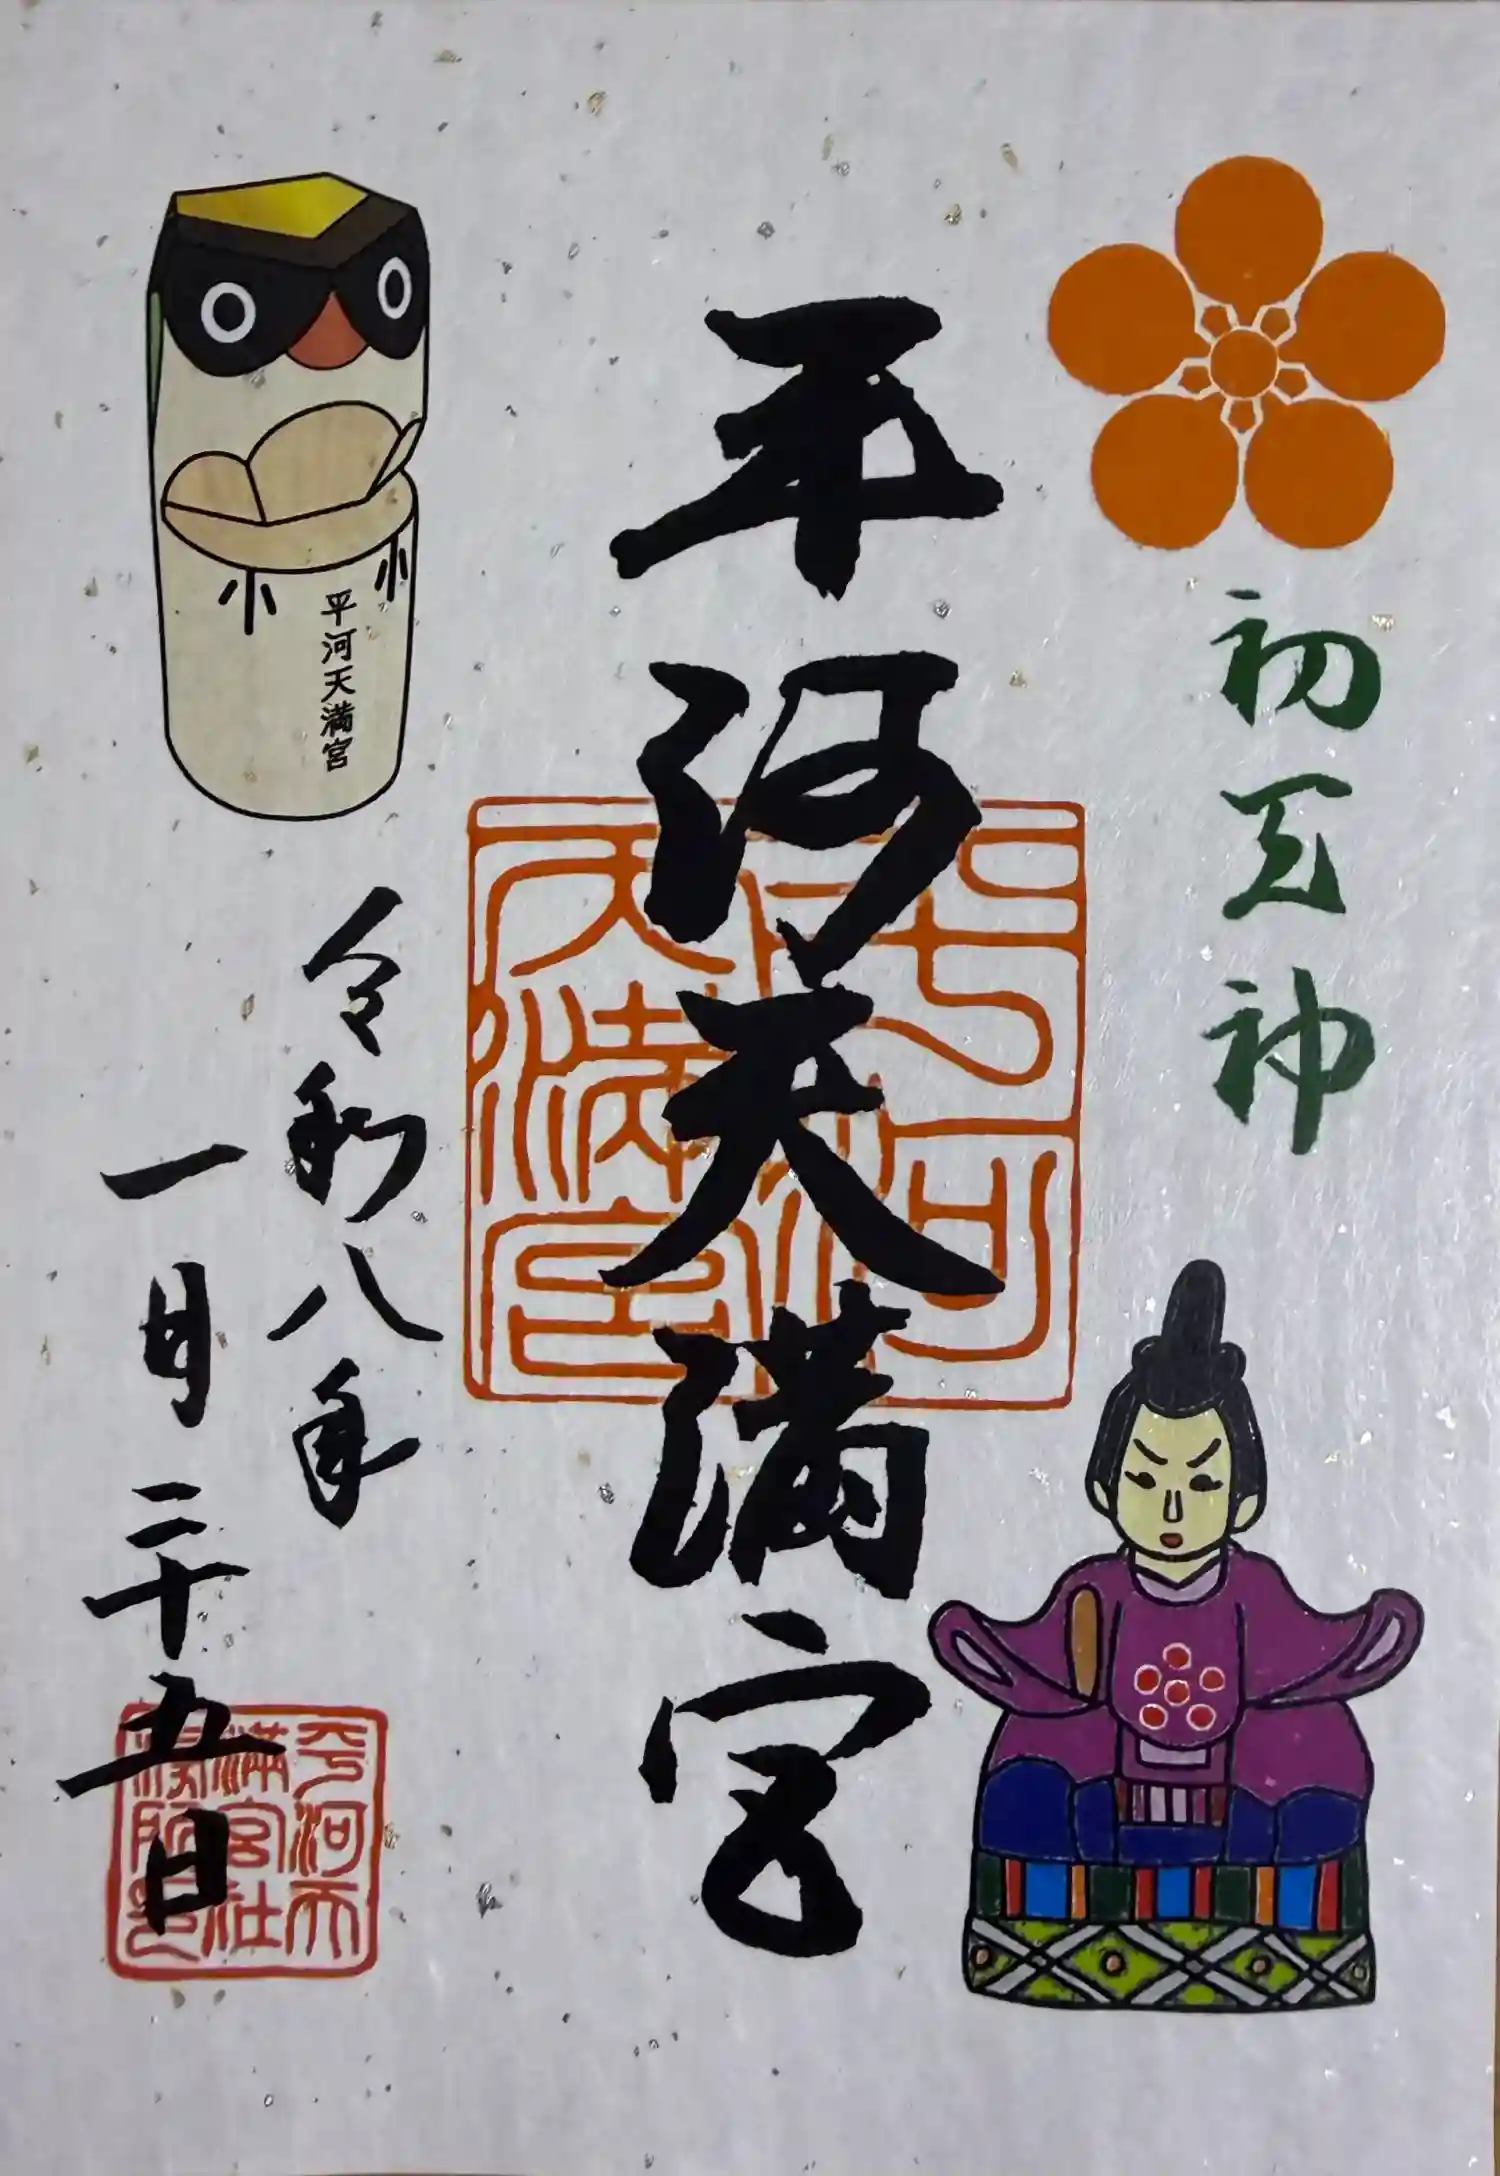 初天神
平河天満宮
平河天満宮
平河天満宮
令和八年
一月二十五日
平河天
満宮社
務所印